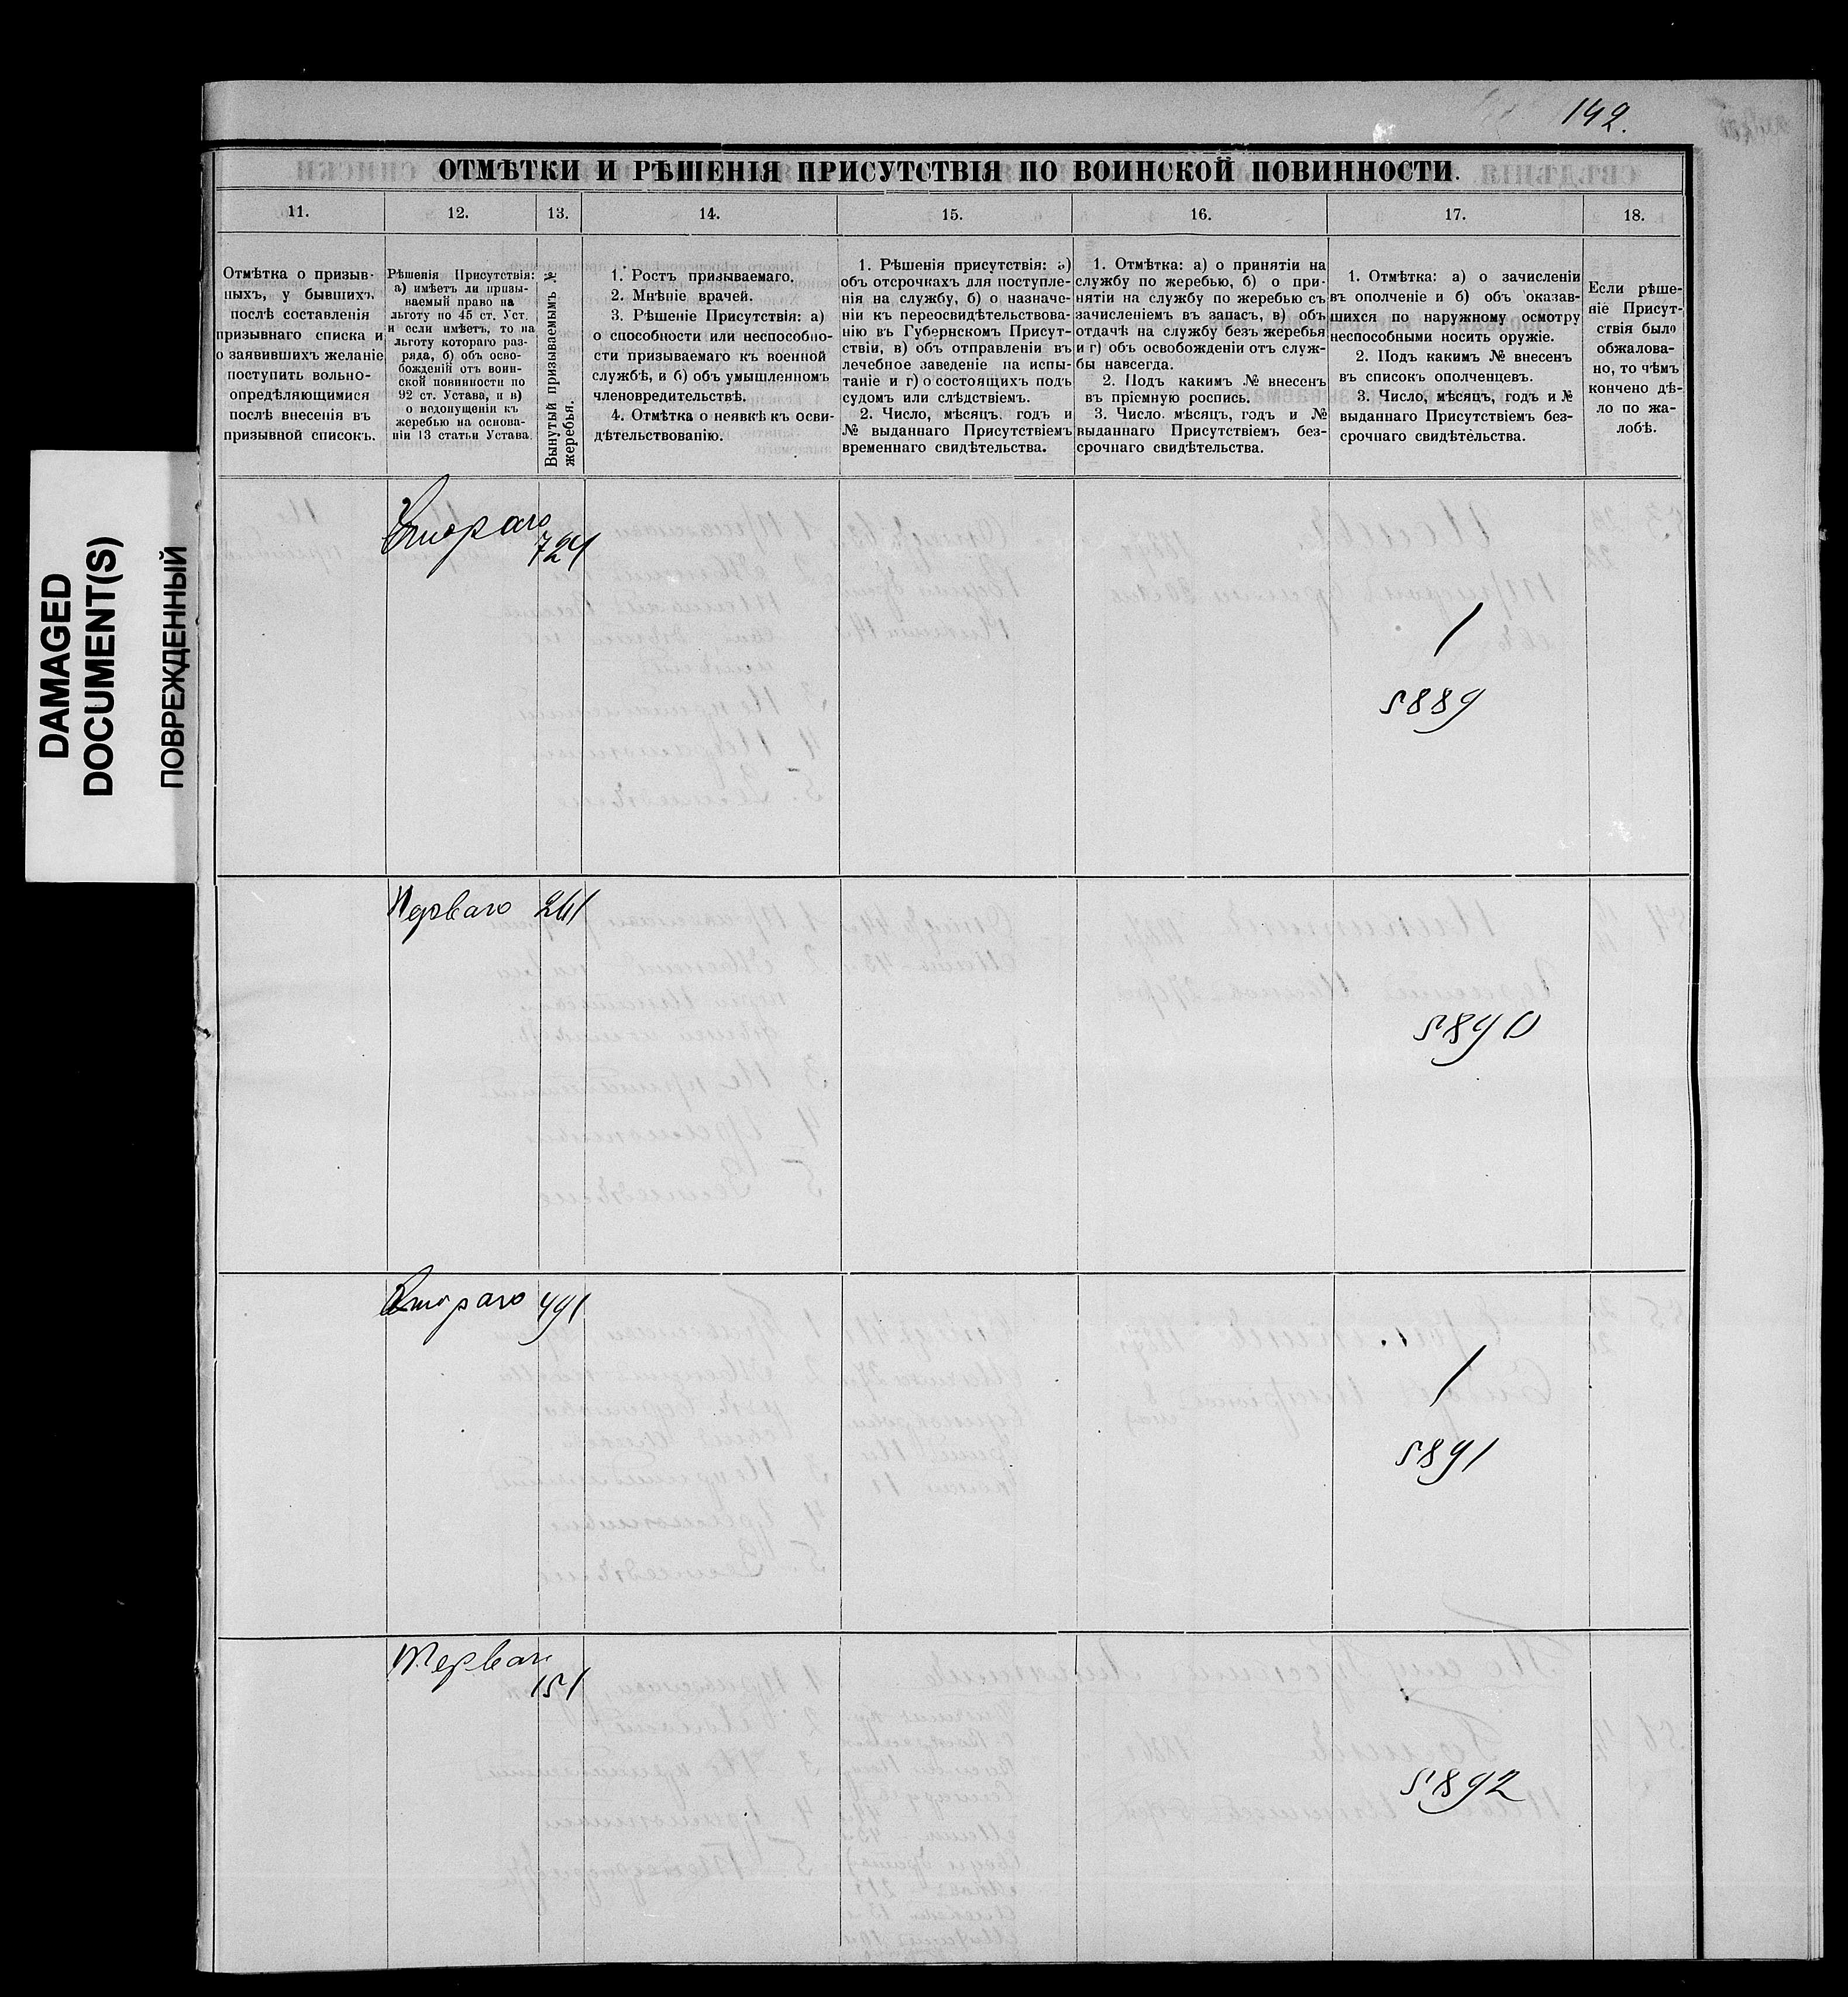 142.
DAMAGED
DOCUMENT(S)
ПОВРЕЖДЕННЫЙ
ОТМѢТКИ И РѢШЕНІЯ ПРИСУТСТВІЯ ПО ВОИНСКОЙ ПОВИННОСТИ.
11.
12.
13.
14.
15.
16.
17.
18.
Отмѣтка о призыв-
ныхъ, у бывшихъ,
послѣ составленія
призывнаго списка и
о заявившихъ желаніе
поступить вольно-
опредѣляющимися
послѣ внесенія въ
призывной списокъ.
Рѣшенія Присутствія:
а) имѣетъ ли призы-
ваемый право на
льготу по 45 ст. Уст.
и если имѣетъ, то на
льготу котораго раз-
ряда, б) объ осво-
божденіи отъ воин-
ской повинности по
92 ст. Устава, и в)
о недопущеніи къ
жеребью на основа-
ніи 13 статьи Устава.
Вынутый призываемымъ №
жеребья.
1. Ростъ призываемаго.
2. Мнѣніе врачей.
3. Рѣшеніе Присутствія: а)
о способности или неспособно-
сти призываемаго къ военной
службѣ, и б) объ умышленномъ
членовредительствѣ.
4. Отмѣтка о неявкѣ къ осви-
дѣтельствованію.
1. Рѣшенія присутствія: а)
объ отсрочкахъ для поступле-
нія на службу, б) о назначе-
ніи къ переосвидѣтельствова-
нію въ Губернскомъ Присут-
ствіи, в) объ отправленіи въ
лечебное заведеніе на испы-
таніе и г) о состоящихъ подъ
судомъ или слѣдствіемъ.
2. Число, мѣсяцъ, годъ и
№ выданнаго Присутствіемъ
временнаго свидѣтельства.
1. Отмѣтка: а) о принятіи на
службу по жеребью, б) о при-
нятіи на службу по жеребью съ
зачисленіемъ въ запасъ, в) объ
отдачѣ на службу безъ жеребья
и г) объ освобожденіи отъ служ-
бы навсегда.
2. Подъ какимъ № внесенъ
въ пріемную роспись.
3. Число, мѣсяцъ, годъ и №
выданнаго Присутствіемъ без-
срочнаго свидѣтельства.
1. Отмѣтка: а) о зачисленіи
въ ополченіе и б) объ оказав-
шихся по наружному осмотру
неспособными носить оружіе.
2. Подъ какимъ № внесенъ
въ списокъ ополченцевъ.
3. Число, мѣсяцъ, годъ и №
выданнаго Присутствіемъ без-
срочнаго свидѣтельства.
Если рѣше-
ніе Присут-
ствія было
обжалова-
но, то чѣмъ
кончено дѣ-
ло по жа-
лобѣ.
Втораго
724
/
5889
Перваго 241
5890
Втораго 491
/
5891
Перваго
151
5892